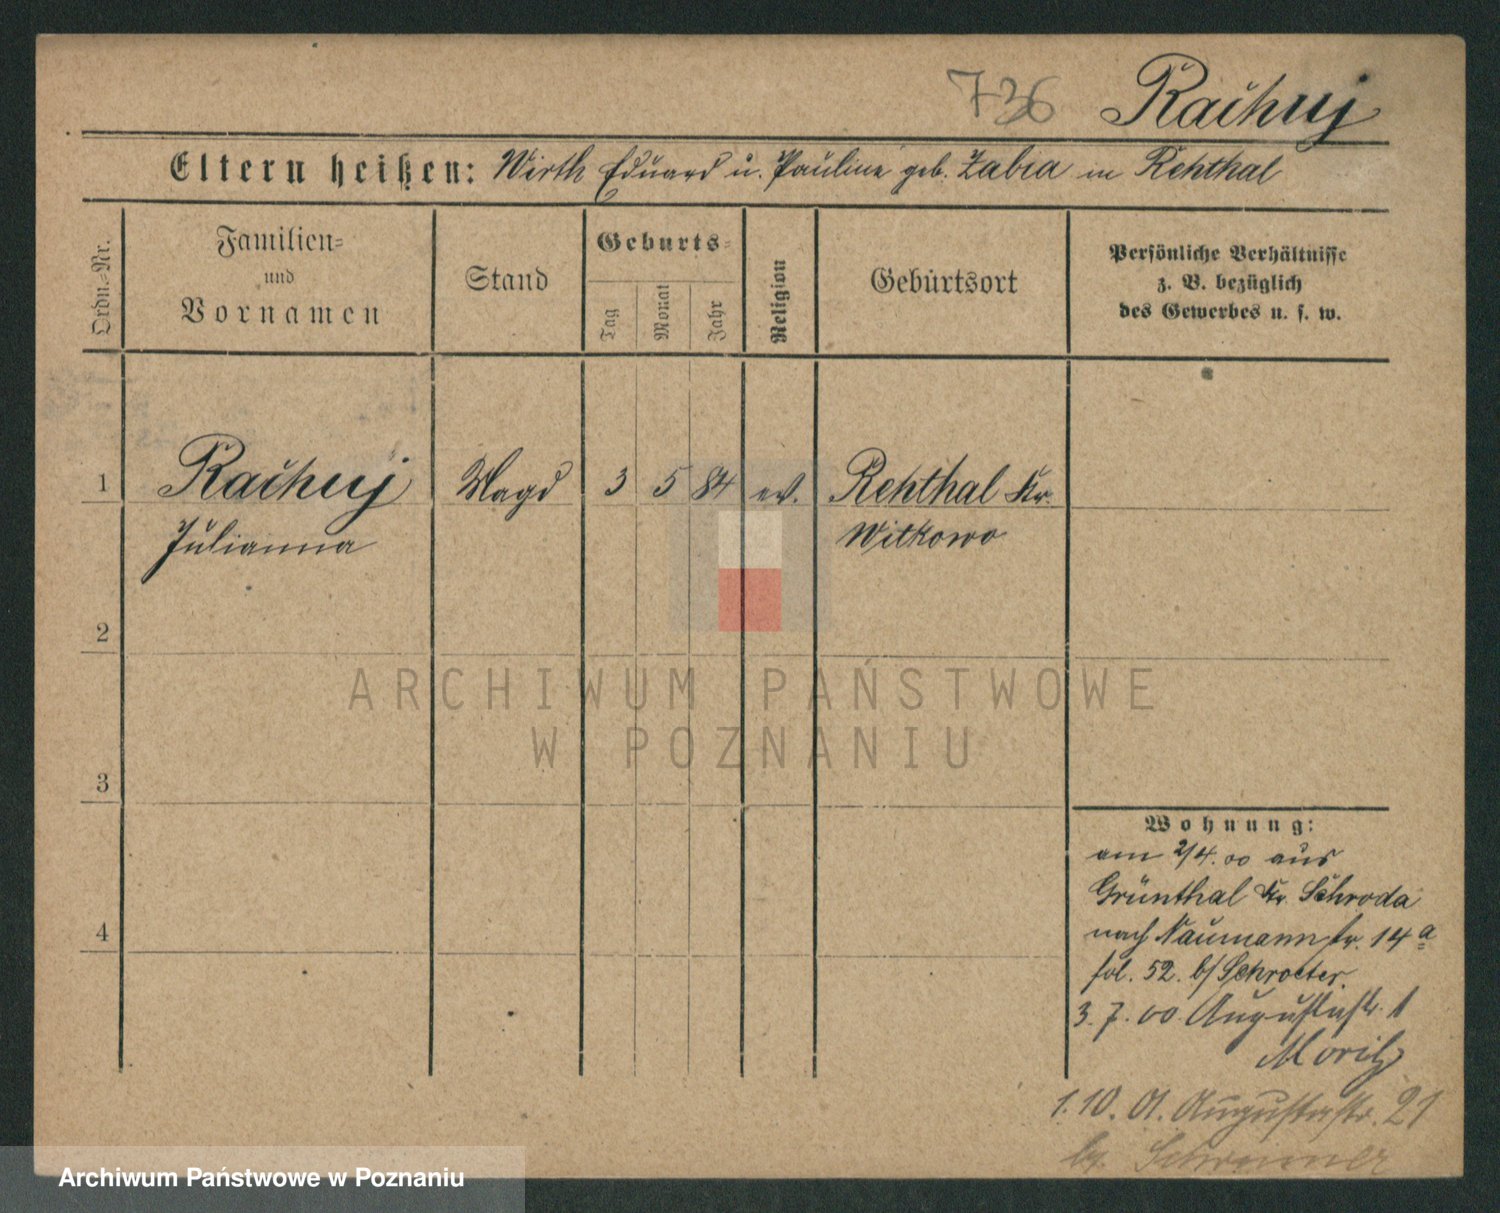 736 Rachuj
Eltern heißen: Wirth Eduard u. Pauline geb. Zabia in Rehthal
Ordn.-Nr.
Familien-
und
Vornamen
Stand
Geburts-
Tag
Monat
Jahr
Religion
Geburtsort
Persönliche Verhältnisse
z. B. bezüglich
des Gewerbes u. s. w.
1 Rachuj Magd 3 5 84 ev. Rehthal Kr.
Julianna Witkowo
2
ARCHIWUM PAŃSTWOWE
W POZNANIU
3
Wohnung:
am 2/4.00 aus
Grünthal Kr. Schroda
4
nach Naumannstr. 14a
fol. 52. b/ Schroeter.
3.7.00 Augustastr. 1
Moritz
1.10.01. Augustastr. 21
Archiwum Państwowe w Poznaniu